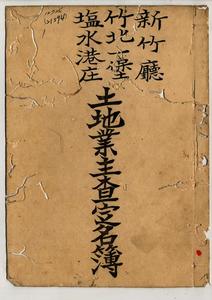 新竹廳
竹北一堡
塩水港庄
土地業主查定名簿